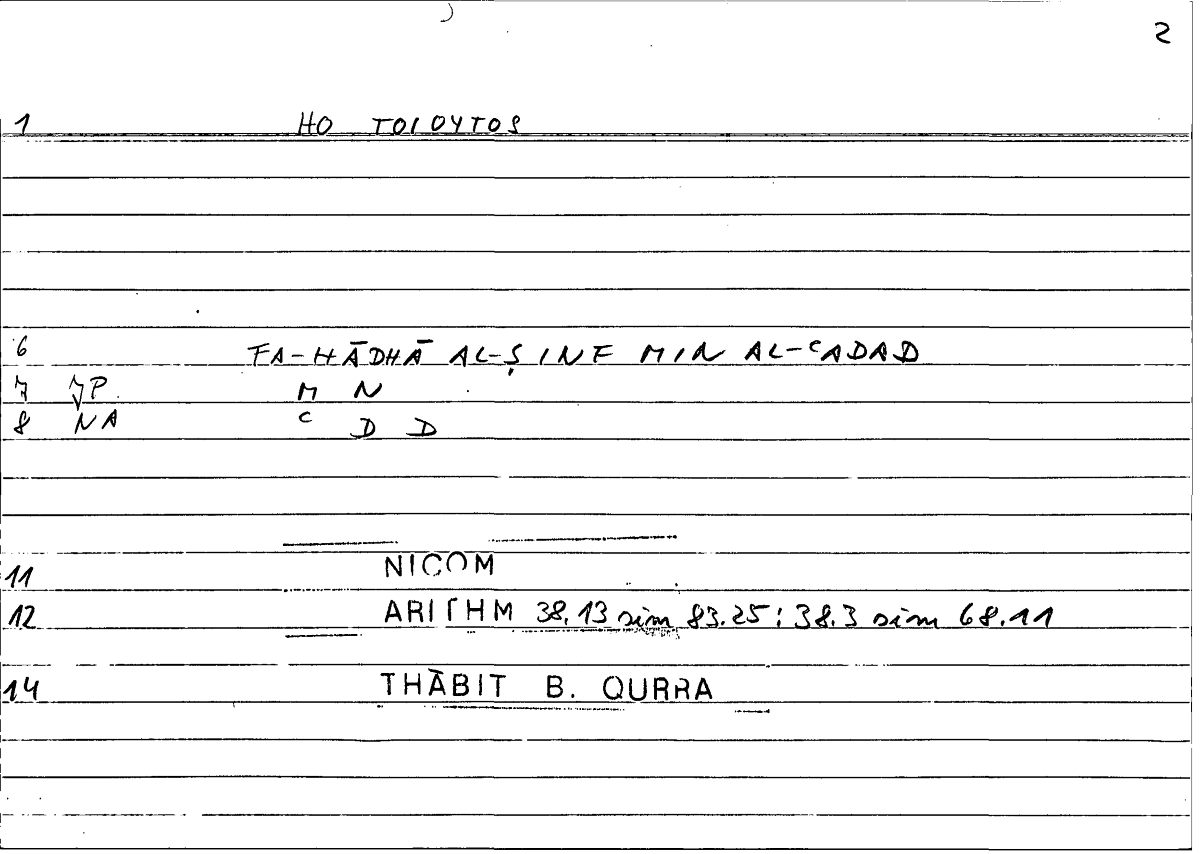 2
1 HO TOIOYTOS
6 FA-HĀDHĀ AL-ṢINF MIN AL-ᶜADAD
7 JP. M N
8 NA ᶜ D D
11 NICOM
12 ARITHM 38.13 sim 83.25; 38.3 sim 68.11
14 THĀBIT B. QURRA